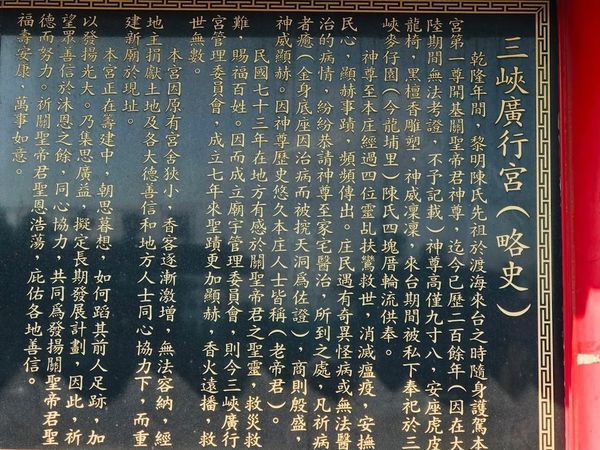 三峽廣行宮（略史）
乾隆年間，黎明陳氏先祖於渡海來台之時隨身護駕本
宮第一尊開基關聖帝君神尊，迄今已歷二百餘年（因在大
陸期間無法考證，不予記載）神尊高僅九寸八，安座虎皮
龍椅，黑檀香雕塑，神威凜凜，來台期間被私下奉祀於三
峽麥仔園（今龍埔里）陳氏四塊厝輪流供奉。
神尊至本庄經過四位靈乩扶鸞救世，消滅瘟疫，安撫
民心，顯赫事蹟，頻頻傳出。庄民遇有奇異怪病或無法醫
治的病情，紛紛恭請神尊至家宅醫治，所到之處，凡祈病
者癒（金身底座因治病而被挖天洞為佐證）商則殷盛，
神威顯赫。因神尊歷史悠久本庄人士皆稱（老帝君）。
民國七十三年在地方有感於關聖帝君之聖靈，救災救
難，賜福百姓。因而成立廟宇管理委員會，則今三峽廣行
宮管理委員會，成立七年來聖蹟更加顯赫，香火遠播，救
世無數。
本宮因原有宮舍狹小，香客逐漸激增，無法容納，經
地主捐獻土地及各大德善信和地方人士同心協力下，而重
建新廟於現址。
本宮正在籌建中，朝思暮想，如何蹈其前人足跡，加
以發揚光大。乃集思廣益，擬定長期發展計劃，因此，祈
望眾善信於沐恩之餘，同心協力，共同為發揚關聖帝君聖
德而努力。祈關聖帝君聖恩浩蕩，庇佑各地善信。
福壽安康，萬事如意。